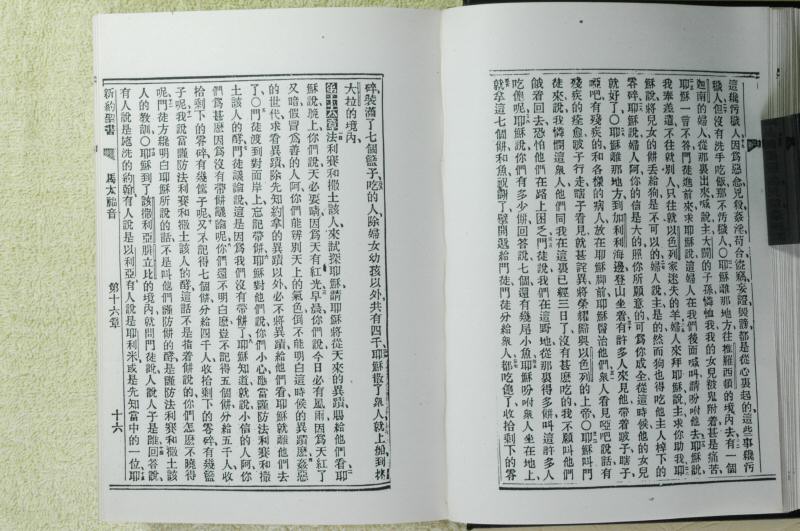 這穢污殱人因爲惡念兇殺姦淫苟合盜竊妄證毀謗都是從心裏起的這些事穢污
殱人但沒有洗手吃飯那不汚殱人〇耶穌離那地方往推羅西頓的境內去有一個
迦南的婦人從那裏出來喊說主大闢的子孫憐恤我我的女兒被鬼附着甚是痛苦
耶穌一會不答門徒進前來求耶穌說這婦人在我們後面喊叫請吩咐他去耶穌說
我奉差遣不往就別人只往就以色列家迷失的羊婦人來拜耶穌說主求你助我耶
穌說將兒女的餅丟給狗是不可以的婦人說主是的然而狗也得吃他主人棹下的
零碎耶穌說婦人阿你的信是大的照你所願意的可爲你成全從這時候他的女兒
就好了〇耶穌離那地方到加利利海邊登山坐着有許多人來見他帶着跛子瞎子
啞吧有殘疾的和各樣的病人放在耶穌脚前耶穌醫治他們衆人看見啞吧說話有
殘疾的痊愈跛子行走瞎子看見就甚詫異將榮耀歸與以色列的上帝〇耶穌叫門
徒來說我憐憫這衆人他們同我在這裏已經三日了沒有甚麽吃的我不願叫他們
餓着回去恐怕他們在路上困乏門徒說我們在這野地從那裏得多餅叫這許多人
吃飽呢耶穌說你們有多少餅回答說七個還有幾尾小魚耶穌吩咐衆人坐在地上
就拿這七個餅和魚祝謝了擘開遞給門徒門徒分給衆人都吃飽了收拾剩下的零
碎裝滿了七個籃子吃的人除婦女幼孩以外共有四千耶穌散了衆人就上船到抹
大拉的境內
第十六章法利賽和撒土該人來試探耶穌請耶穌將從天來的異蹟賜給他們看耶
穌說晚上你們說天必要晴因爲天有紅光早晨你們說今日必有風雨因爲天紅了
又暗假冒爲善的人阿你們能辨別天上的氣色倒不能明白這時候的異蹟麽姦惡
的世代求看異蹟除先知約拿的異蹟以外必不將異蹟給他們看耶穌就離他們去
了〇門徒渡到對面岸上忘記帶餅耶穌對他們說你們小心應當謹防法利賽和撒
土該人的酵門徒議論說這是因爲我們沒有帶餅了耶穌知道就說小信的人阿你
們爲甚麽因爲沒有帶餅議論呢你們還不明白麽豈不記得五個餅分給五千人收
拾剩下的零碎有幾筐子呢又不記得七個餅分給四千人收拾剩下的零碎有幾籃
子呢我說當謹防法利賽和撒土該人的酵這話不是指着餅說的你們怎麽不曉得
呢門徒方纔明白耶穌所說的話不是叫他們謹防餅的酵是謹防法利賽和撒土該
人的教訓〇耶穌到了該撒利亞腓立比的境內就問門徒說人說人子是誰回答說
有人說是施洗的約翰有人說是以利亞有人說是耶利米或是先知當中的一位耶
新約聖書
馬太福音
第十六章
十六